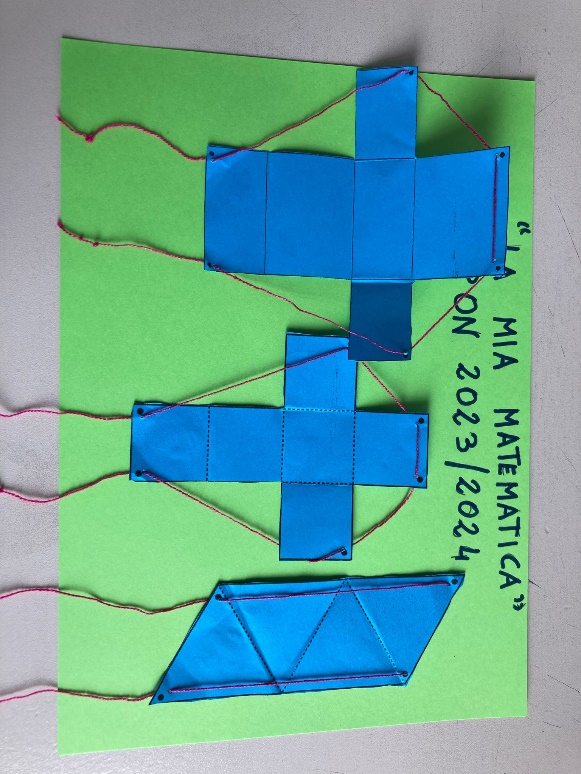 “LA MIA MATEMATICA”
PON 2023/2024